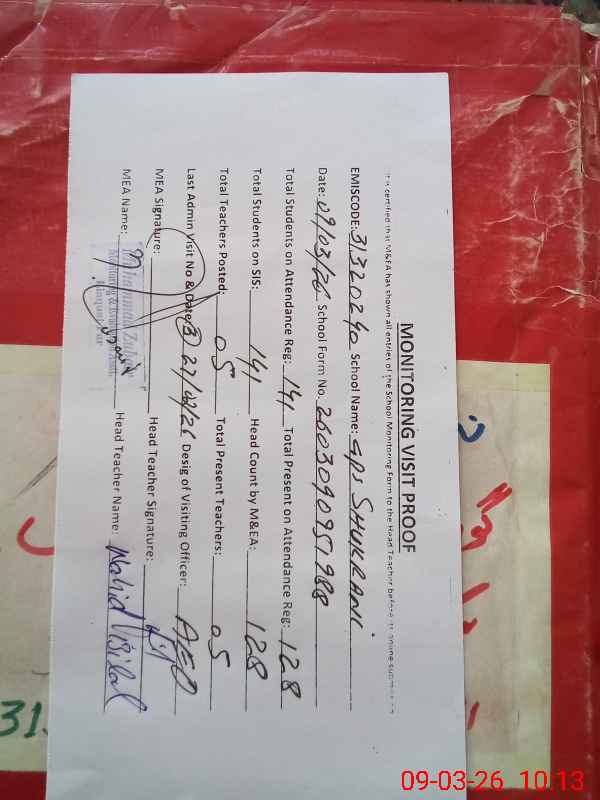 MONITORING VISIT PROOF
It is certified that M&EA has shown all entries of the School Monitoring Form to the Head Teacher before its online submission
EMISCODE: 31320240 School Name: GPS SHUKRANI
Date: 09/03/26 School Form No. 260309095 1988
Total Students on Attendance Reg: 141 Total Present on Attendance Reg: 128
Total Students on SIS: 141 Head Count by M&EA: 128
Total Teachers Posted: 05 Total Present Teachers: 05
Last Admin Visit No & Date: (3) 27/02/26 Desig of Visiting Officer: AEO
MEA Signature: Head Teacher Signature:
Muhammad Zubair
Monitoring &
MEA Name: Head Teacher Name: Wahid
09-03-26 10:13